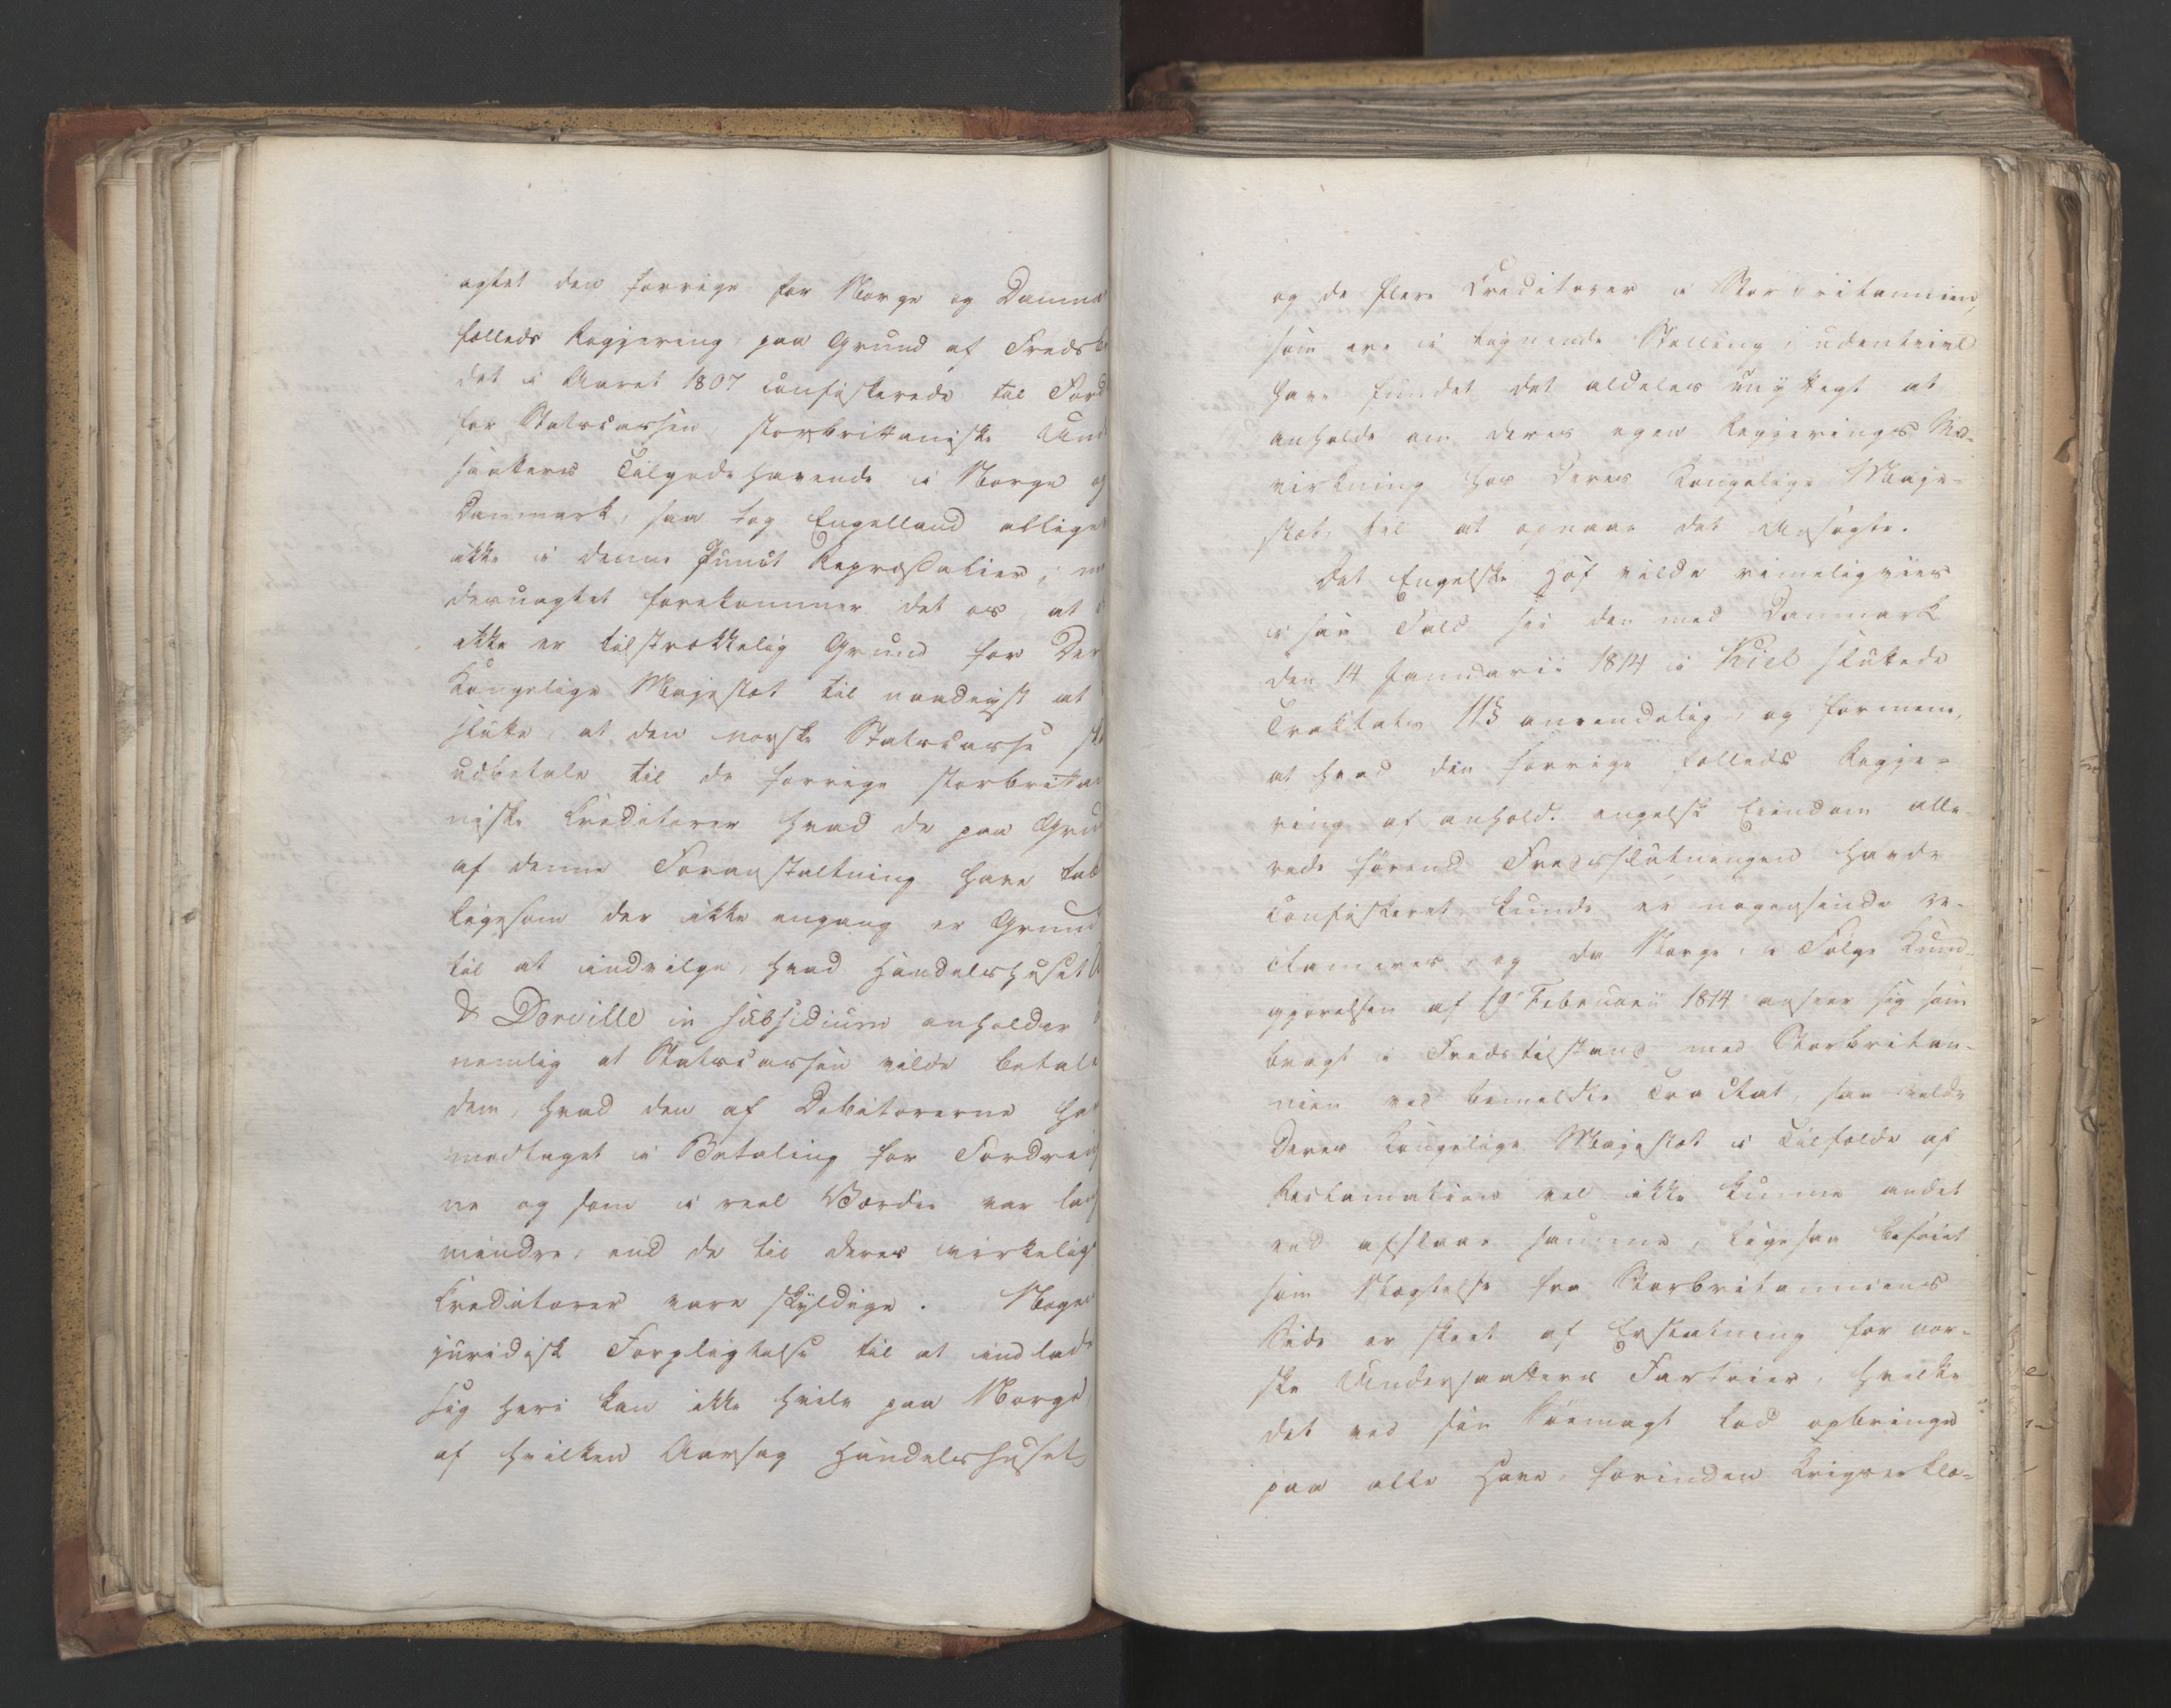 agtet den forrige for Norge og Danma
fælleds Regjering, paa Grund af Freds
det i Aaret 1807 confiskerede til Ford
for Statscassen, storbrittaniske Und
saatters Tilgodehavende i Norge og
Danmark, saa tog Engelland allige
ikke i denne Punct Repressalier;
desuagtet forekommer det os, at
ikke er tilstrækkelig Grund for Der
Kongelige Majestæt til naadigst at
slutte, at den norske Statscasse
udbetale til de forrige storbritta
niske Creditorer hvad de paa Gru
af denne Foranstaltning have tab
ligesom der ikke engang er Grund
til at indvilge, hvad Handelshuset
& Dorville in subsidium anholder
nemlig at Statscassen vilde betale
dem, hvad den af Debitorerne ha
modtaget i Betaling for Fordrin
ne og som i reel Værdie var lan
mindre, end de til deres virkelige
Creditorer vare skyldige. Nogen
juridisk Forpligtelse til at indlade
sig heri kan ikke hvile paa Norge,
af hvilken Aarsag Handelshuset
og de flere Creditorer i Storbritannien,
som ere i lignende Stilling, udentvivl
have fundet det aldeles unyttigt at
anholde om deres egen Regjerings Med-
virkning hos Deres Kongelige Maje-
stæt, til at opnaae det Ansøgte.
Det Engelske Hof vilde rimeligviis
i saa Fald see den med Danmark
den 14 Januarii 1814 i Kiel sluttede
Traktats 11§ anvendelig, og formene,
at hvad den forrige fælleds Regje-
ring af anhold. engelsk Eiendom alle-
rede førend Fredsslutningen havde
confiskeret, kunde ei nogensinde re-
clameres, og da Norge, i Følge Kund-
gjørelsen af 19 Februarii 1814 anseer sig som
bragt i Fredstilstand med Storbritan-
nien ved bemeldte Tractat, saa vilde
Deres Kongelige Majestæt i Tilfælde af
Reclamation vel ikke kunne andet
end afslaae samme, ligesaa beføiet
som Nægtelse fra Storbritanniens
Side er skeet af Erstatning for nor-
ske Undersaatters Fartøier, hvilke
det ved sin Søemagt lod opbringe
paa alle Have, forinden Krigserklæ-